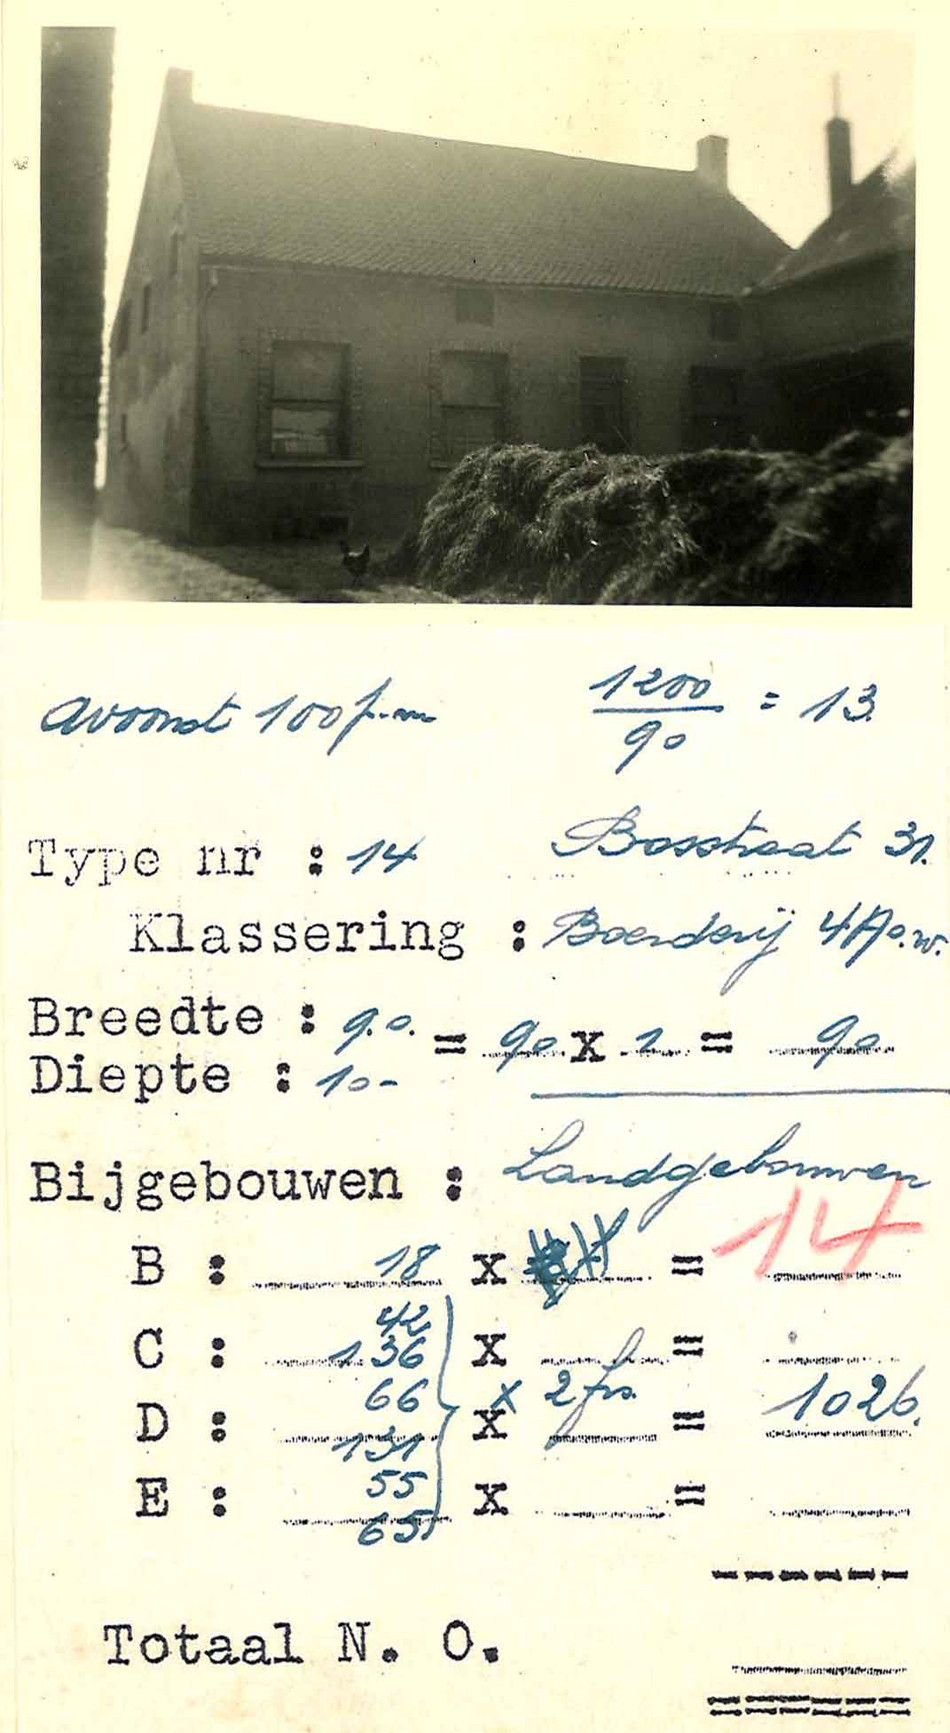 avoorst 100 p.m 1200 / 90 = 13.
Type nr : 14 Bosstraat 31.
Klassering : Boerderij 4A o.w.
Breedte : 9.0. = 90 x 1 = 90
Diepte : 10-
Bijgebouwen : Landgebouwen
B : 18 x = 14
42
C : 136 x =
66 x 2 frs.
D : x = 1026.
131
55
E : x =
65
Totaal N. O.